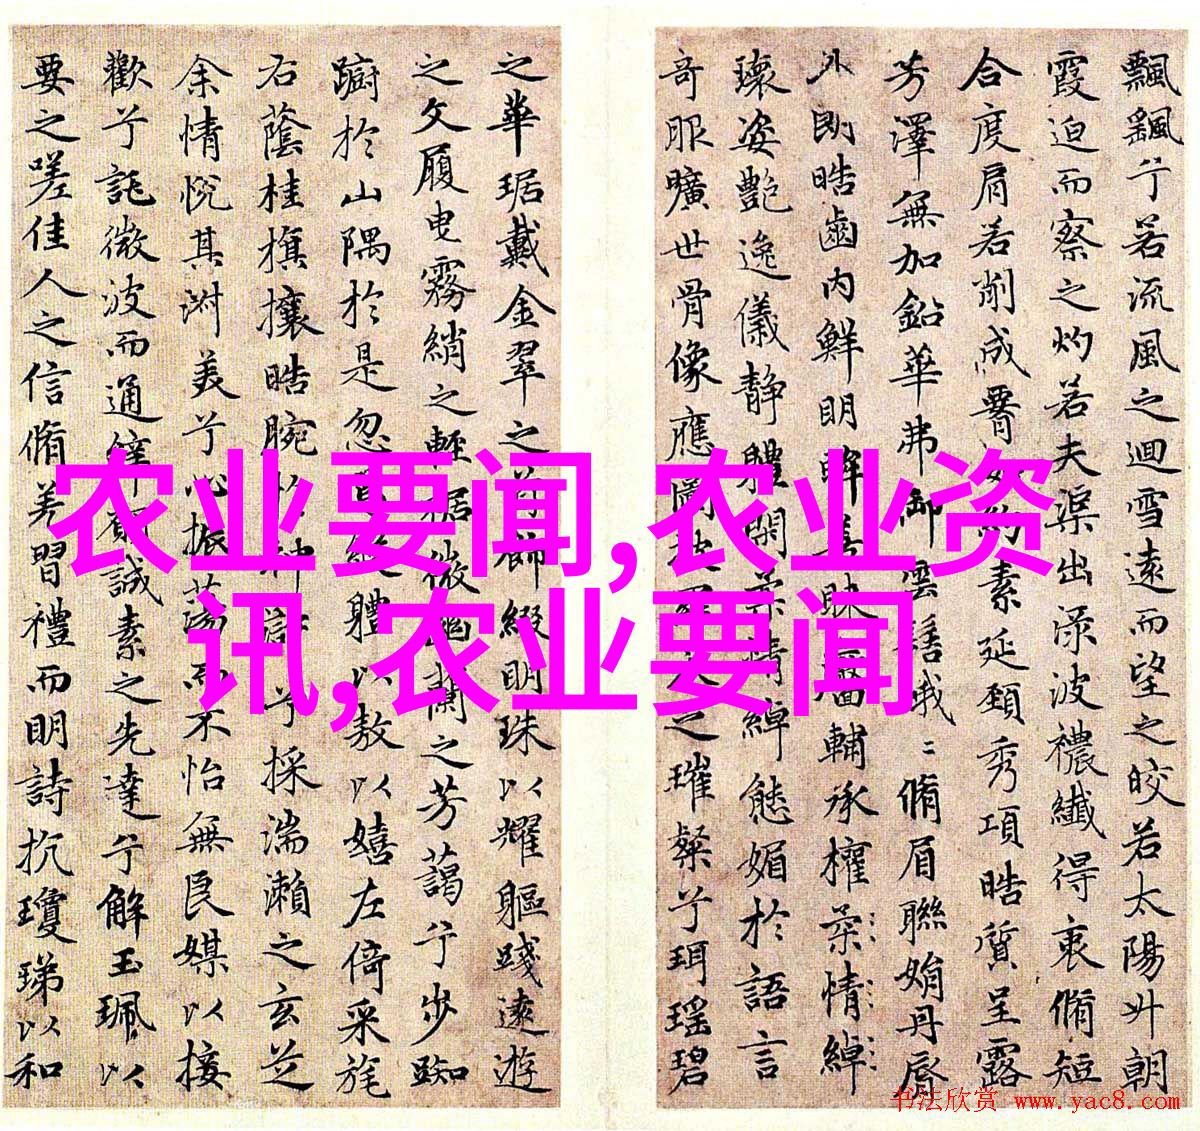 飄飖兮若流風之迴雪遠而望之皎若太陽升朝
霞迫而察之灼若夫渠出淥波襛纖得衷脩短
合度肩若削成腰如約素延頸秀項皓質呈露
芳澤無加鉛華弗御雲髻峨〻脩眉聯娟丹脣
外朗皓齒内鮮明眸善睞靨輔承權柔情綽
瓌姿艷逸儀静體閑柔情綽態媚於語言
奇服曠世骨像應圖披羅衣之璀粲兮珥瑶碧
之華琚戴金翠之首飾綴明珠以耀軀踐遠遊
之文履曳霧綃之輕裾微幽蘭之芳藹兮步踟
躕於山隅於是忽焉縱體以敖以嬉左倚采旄
右蔭桂旗攘晧腕於神滸兮採湍瀨之玄芝
余情悅其淑美兮心振蕩而不怡無良媒以接
歡兮託微波而通辭願誠素之先達兮解玉珮以
要之嗟佳人之信脩羌習禮而明詩抗瓊珶以和
农业要闻,农业资
讯,农业要闻
书法欣赏 www.yac8.com